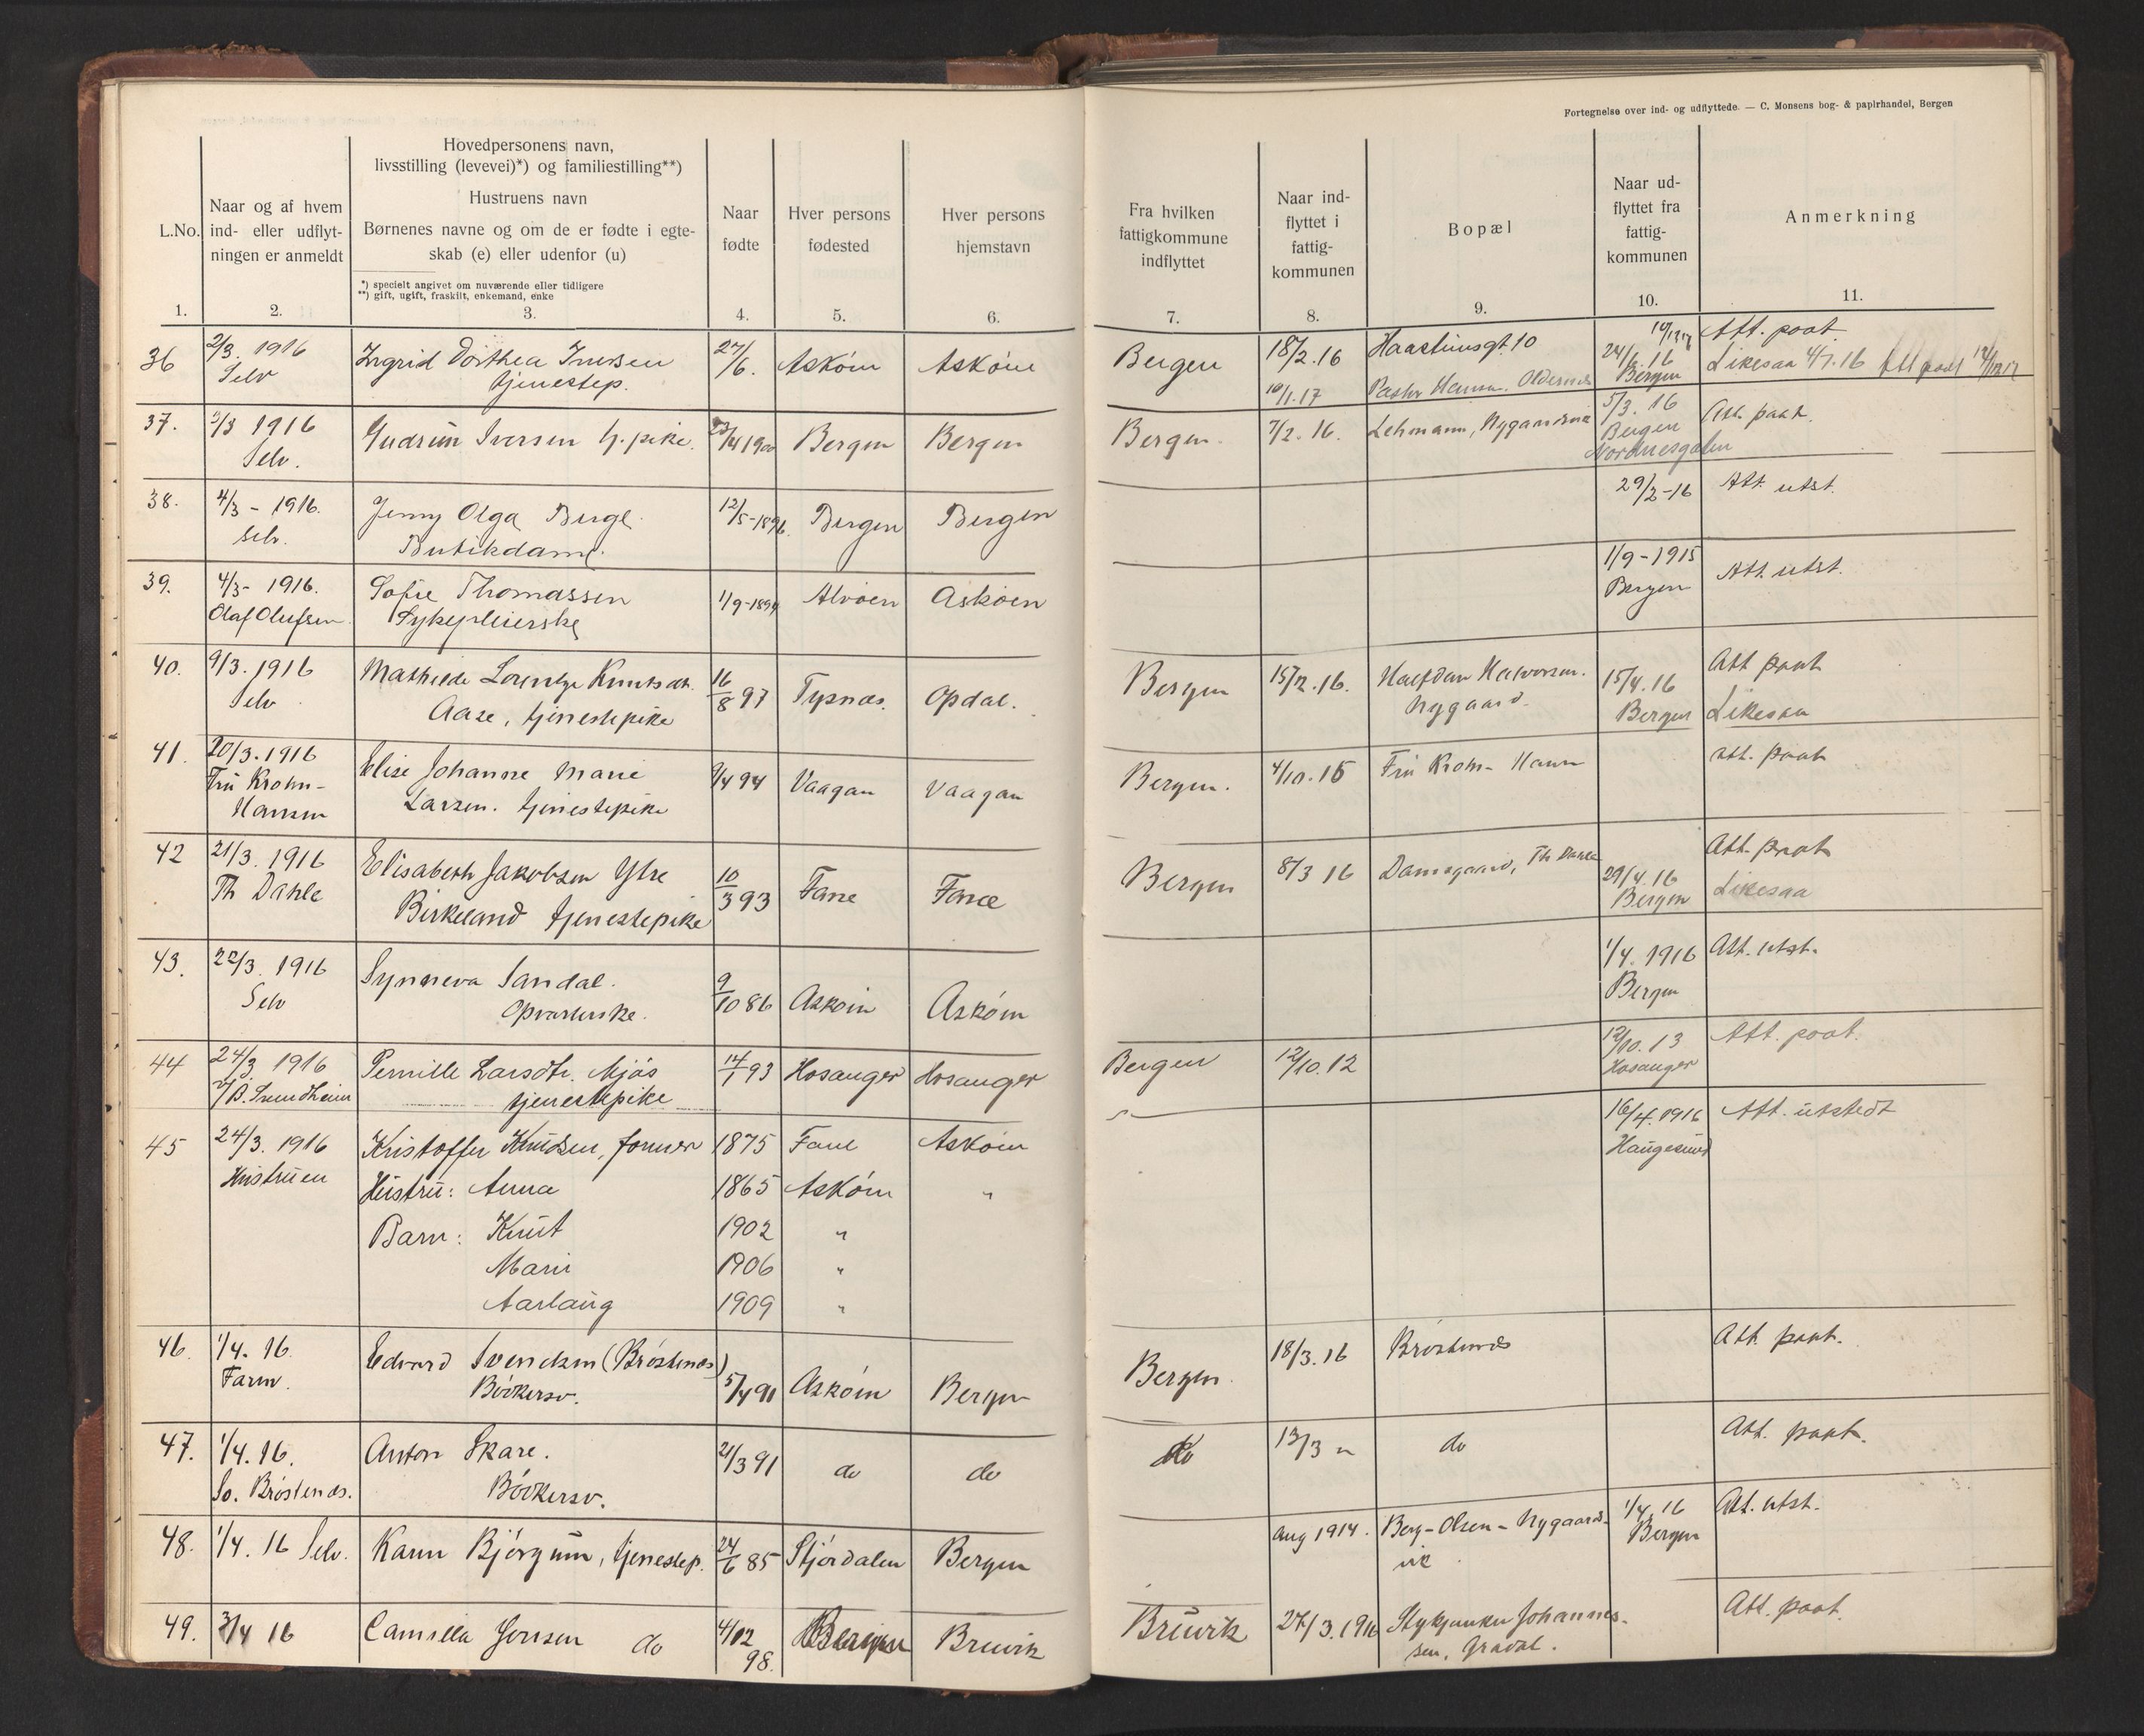 Fortegnelse over ind- og udflyttede. — C. Monsens bog- & papirhandel, Bergen
L.No.
1.
Naar og af hvem
ind- eller udflyt-
ningen er anmeldt
2.
Hovedpersonens navn,
livsstilling (levevei)*) og familiestilling**)
Hustruens navn
Børnenes navne og om de er fødte i egte-
skab (e) eller udenfor (u)
*) specielt angivet om nuværende eller tidligere
**) gift, ugift, fraskilt, enkemand, enke
3.
Naar
fødte
4.
Hver persons
fødested
5.
Hver persons
hjemstavn
6.
Fra hvilken
fattigkommune
indflyttet
7.
Naar ind-
flyttet i
fattig-
kommunen
8.
Bopæl
9.
Naar ud-
flyttet fra
fattig-
kommunen
10.
Anmerkning
11.
36 2/3. 1916 Ingrid Dorthea Iversen 27/6. Askøen Askøen Bergen 18/2.16 Haasteinsgt. 10 24/6.16 Att. paat.
Selv tjenestep. 10/1.17 Bergen Likesaa 4/7.16 Att paat
37. 3/3 1916 Gudrun Iversen tj. pike. 23/4 1900 Bergen Bergen Bergen. 7/2.16. Lehmann, 5/3.16 Att. paat.
Selv. Bergen
Nordnesgaten
38. 4/3 - 1916. Jenny Olga 12/5-1896. Bergen Bergen 29/2-16 Att. utst.
selv. Butikdame.
39. 4/3- 1916. Sofie Thomassen 1/9-1894 Alvøen Askøen 1/9-1915 Att. utst.
Olaf Olufsen Sykepleierske Bergen
40. 9/3. 1916 Mathilde Lorentze Knutsdt. 16/8 97 Tysnæs. Opdal. Bergen 15/2.16. Halfdan Halvorsen. 15/4.16 Att paat
Selv Aase, tjenestepike Nygaard. Bergen Likesaa
41. 20/3.1916 Elise Johanne Marie 9/4 94 Vaagan Vaagan Bergen. 4/10.15 Fru Krohn- Hansen Att. paat
Fru Krohn- Larsen. tjenestepike
Hansen
42 21/3. 1916 Elisabeth Jakobsen Ytre 10/3 93 Fane Fane Bergen 8/3 16 Damsgaard, Th Dahle 29/4.16 Att. paat
Th Dahle Birkeland tjenestepike Bergen Likesaa
43. 22/3. 1916 Synneva Sandal. 9/10 86 Askøen Askøen 1/4. 1916 Att. utst.
Selv Opvarterske. Bergen
44 24/3 1916 Pernille Larsdtr. Mjøs 14/1 93 Hosanger Hosanger Bergen 12/10.12 12/10.13 Att. paat.
tjenestepike Hosanger
45 24/3. 1916 Kristoffer Knudsen, former 1875 Fane Askøen 16/4.1916 Att. utstedt
Hustruen Haugesund
Hustru: Anna 1865 Askøen "
Barn: Knut 1902 "
Marie 1906 "
Aaslaug 1909 "
46. 1/4. 16. Edvard Svendsen (Brøstenæs) 5/4 91 Askøen Bergen Bergen. 18/3.16 Brøstenæs Att. paat.
Farm. Bødkersv.
47. 1/4. 16. Anton Skare. 21/3 91 do do do 13/3 " do Att. paat.
So. Brøstenæs. Bødkersv.
48. 1/4. 16 Selv. Karen Bjørgum, tjenestep. 24/6 85 Stjørdalen Bergen Aug 1914. Berg-Olsen- Nygaards- 1/4.16 Att. utst.
vik Bergen
49. 3/4 16 Camilla Jensen do 4/12 98. Bergen Bruvik Bruvik 27/3.1916 Styrmand Johannes- Att. paat.
sen, Gravdal.